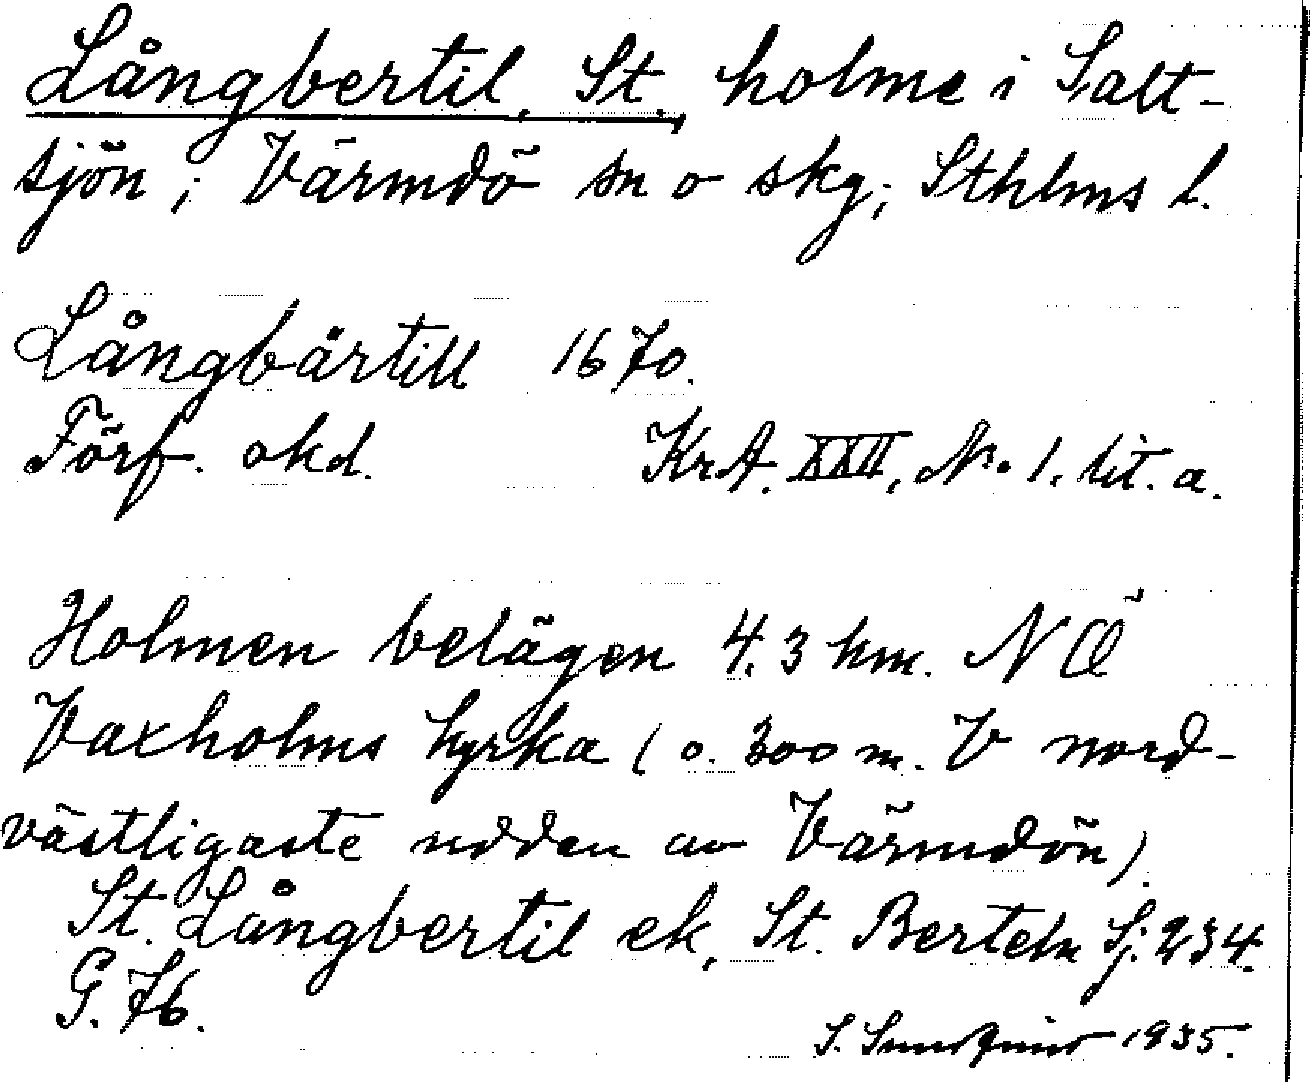 Långbertil, St., holme i Salt-
sjön; Värmdö sn o skg; Sthlms l.
Långbärtill 1670.
Förf. okd. KrA. XXII, No 1. lit. a.
Holmen belägen 4.3 km. NÖ
Vaxholms kyrka (o. 300 m. V nord-
västligaste udden av Värmdön).
St. Långbertil ek, St. Berteln Sj. 234.
G. 76.
S. 1935.